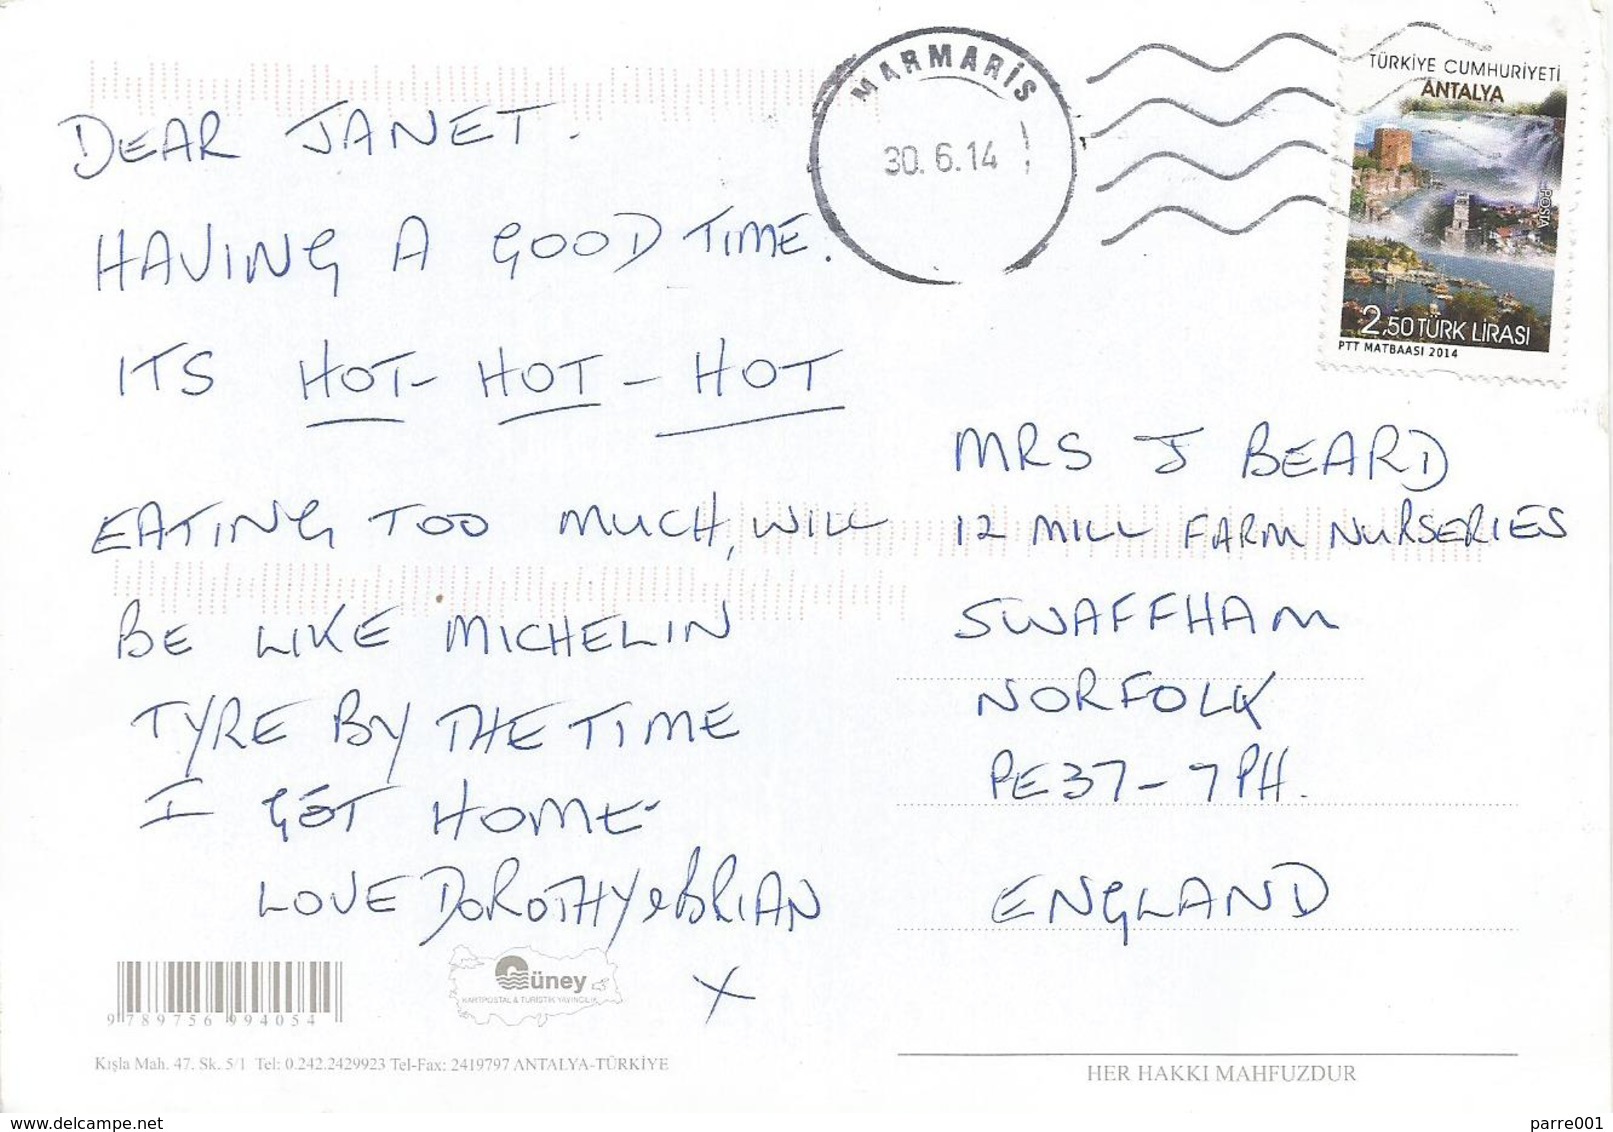 MARMARİS
30.6.14
TÜRKİYE CUMHURİYETİ
ANTALYA
POSTA
2,50 TÜRK LİRASI
PTT MATBAASI 2014
DEAR JANET.
HAVING A GOOD TIME.
ITS HOT - HOT - HOT
EATING TOO MUCH, WILL
BE LIKE MICHELIN
TYRE BY THE TIME
I GET HOME
LOVE DOROTHY & BRIAN
X
MRS J BEARD
12 MILL FARM NURSERIES
SWAFFHAM
NORFOLK
PE37-7PH.
ENGLAND
9 789756 994054
Güney
KARTPOSTAL & TURİSTİK YAYINCILIK
Kışla Mah. 47. Sk. 5/1 Tel: 0.242.2429923 Tel-Fax: 2419797 ANTALYA-TÜRKİYE
HER HAKKI MAHFUZDUR
www.delcampe.net
parre001